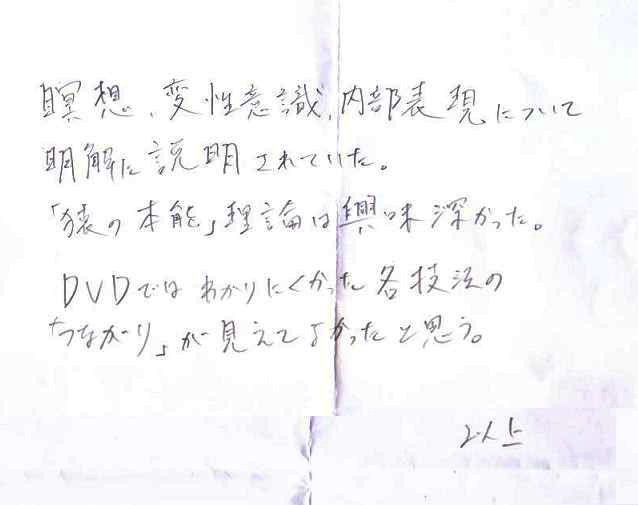 瞑想、変性意識、内部表現について
明解に説明されていた。
「猿の本能」理論は興味深かった。
DVDではわかりにくかった各技法の
「つながり」が見えてよかったと思う。
以上